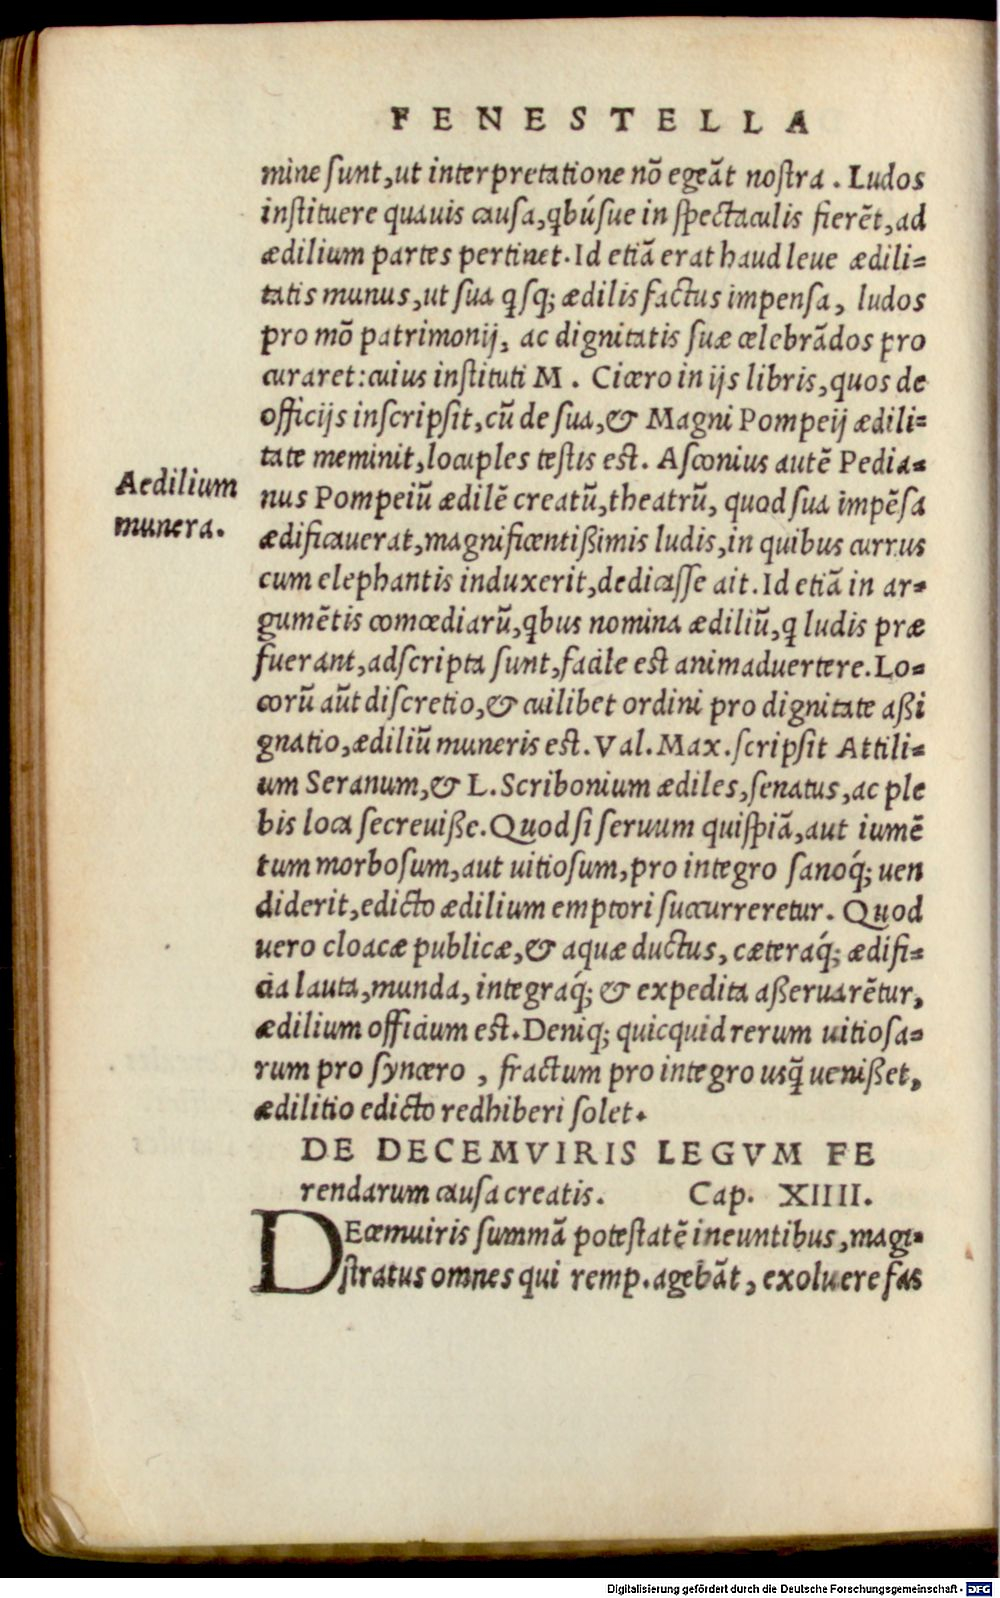 FENESTELLA
mine sunt, ut interpretatione nõ egeãt nostra. Ludos
instituere quauis causa, qbúsue in spectaculis fierẽt, ad
ædilium partes pertinet. Id etiã erat haud leue ædili=
tatis munus, ut sua qsq; ædilis factus impensa, ludos
pro mõ patrimonij, ac dignitatis suæ celebrãdos pro
curaret: cuius instituti M. Cicero in ijs libris, quos de
officijs inscripsit, cũ de sua, & Magni Pompeij ædili=
tate meminit, locuples testis est. Asconius autẽ Pedia=
nus Pompeiũ ædilẽ creatũ, theatrũ, quod sua impẽsa
Aedilium
munera.
ædificauerat, magnificentißimis ludis, in quibus currus
cum elephantis induxerit, dedicasse ait. Id etiã in ar=
gumẽtis comœdiarũ, qbus nomina ædiliũ, q ludis præ
fuerant, adscripta sunt, facile est animaduertere. Lo=
corũ aũt discretio, & cuilibet ordini pro dignitate aßi
gnatio, ædiliũ muneris est. Val. Max. scripsit Attili=
um Seranum, & L. Scribonium ædiles, senatus, ac ple
bis loca secreuiße. Quod si seruum quispiã, aut iumẽ
tum morbosum, aut uitiosum, pro integro sanoq́; uen
diderit, edicto ædilium emptori succurreretur. Quod
uero cloacæ publicæ, & aquæ ductus, cæteraq́; ædifi=
cia lauta, munda, integraq́; & expedita aßeruarẽtur,
ædilium officium est. Deniq; quicquid rerum uitiosa=
rum pro syncero, fractum pro integro usq̃ ueniẞet,
ædilitio edicto redhiberi solet.
DE DECEMVIRIS LEGVM FE
rendarum causa creatis. Cap. XIIII.
DEcemuiris summã potestatẽ ineuntibus, magi=
stratus omnes qui remp. agebãt, exoluere fas
Digitalisierung gefördert durch die Deutsche Forschungsgemeinschaft - DFG